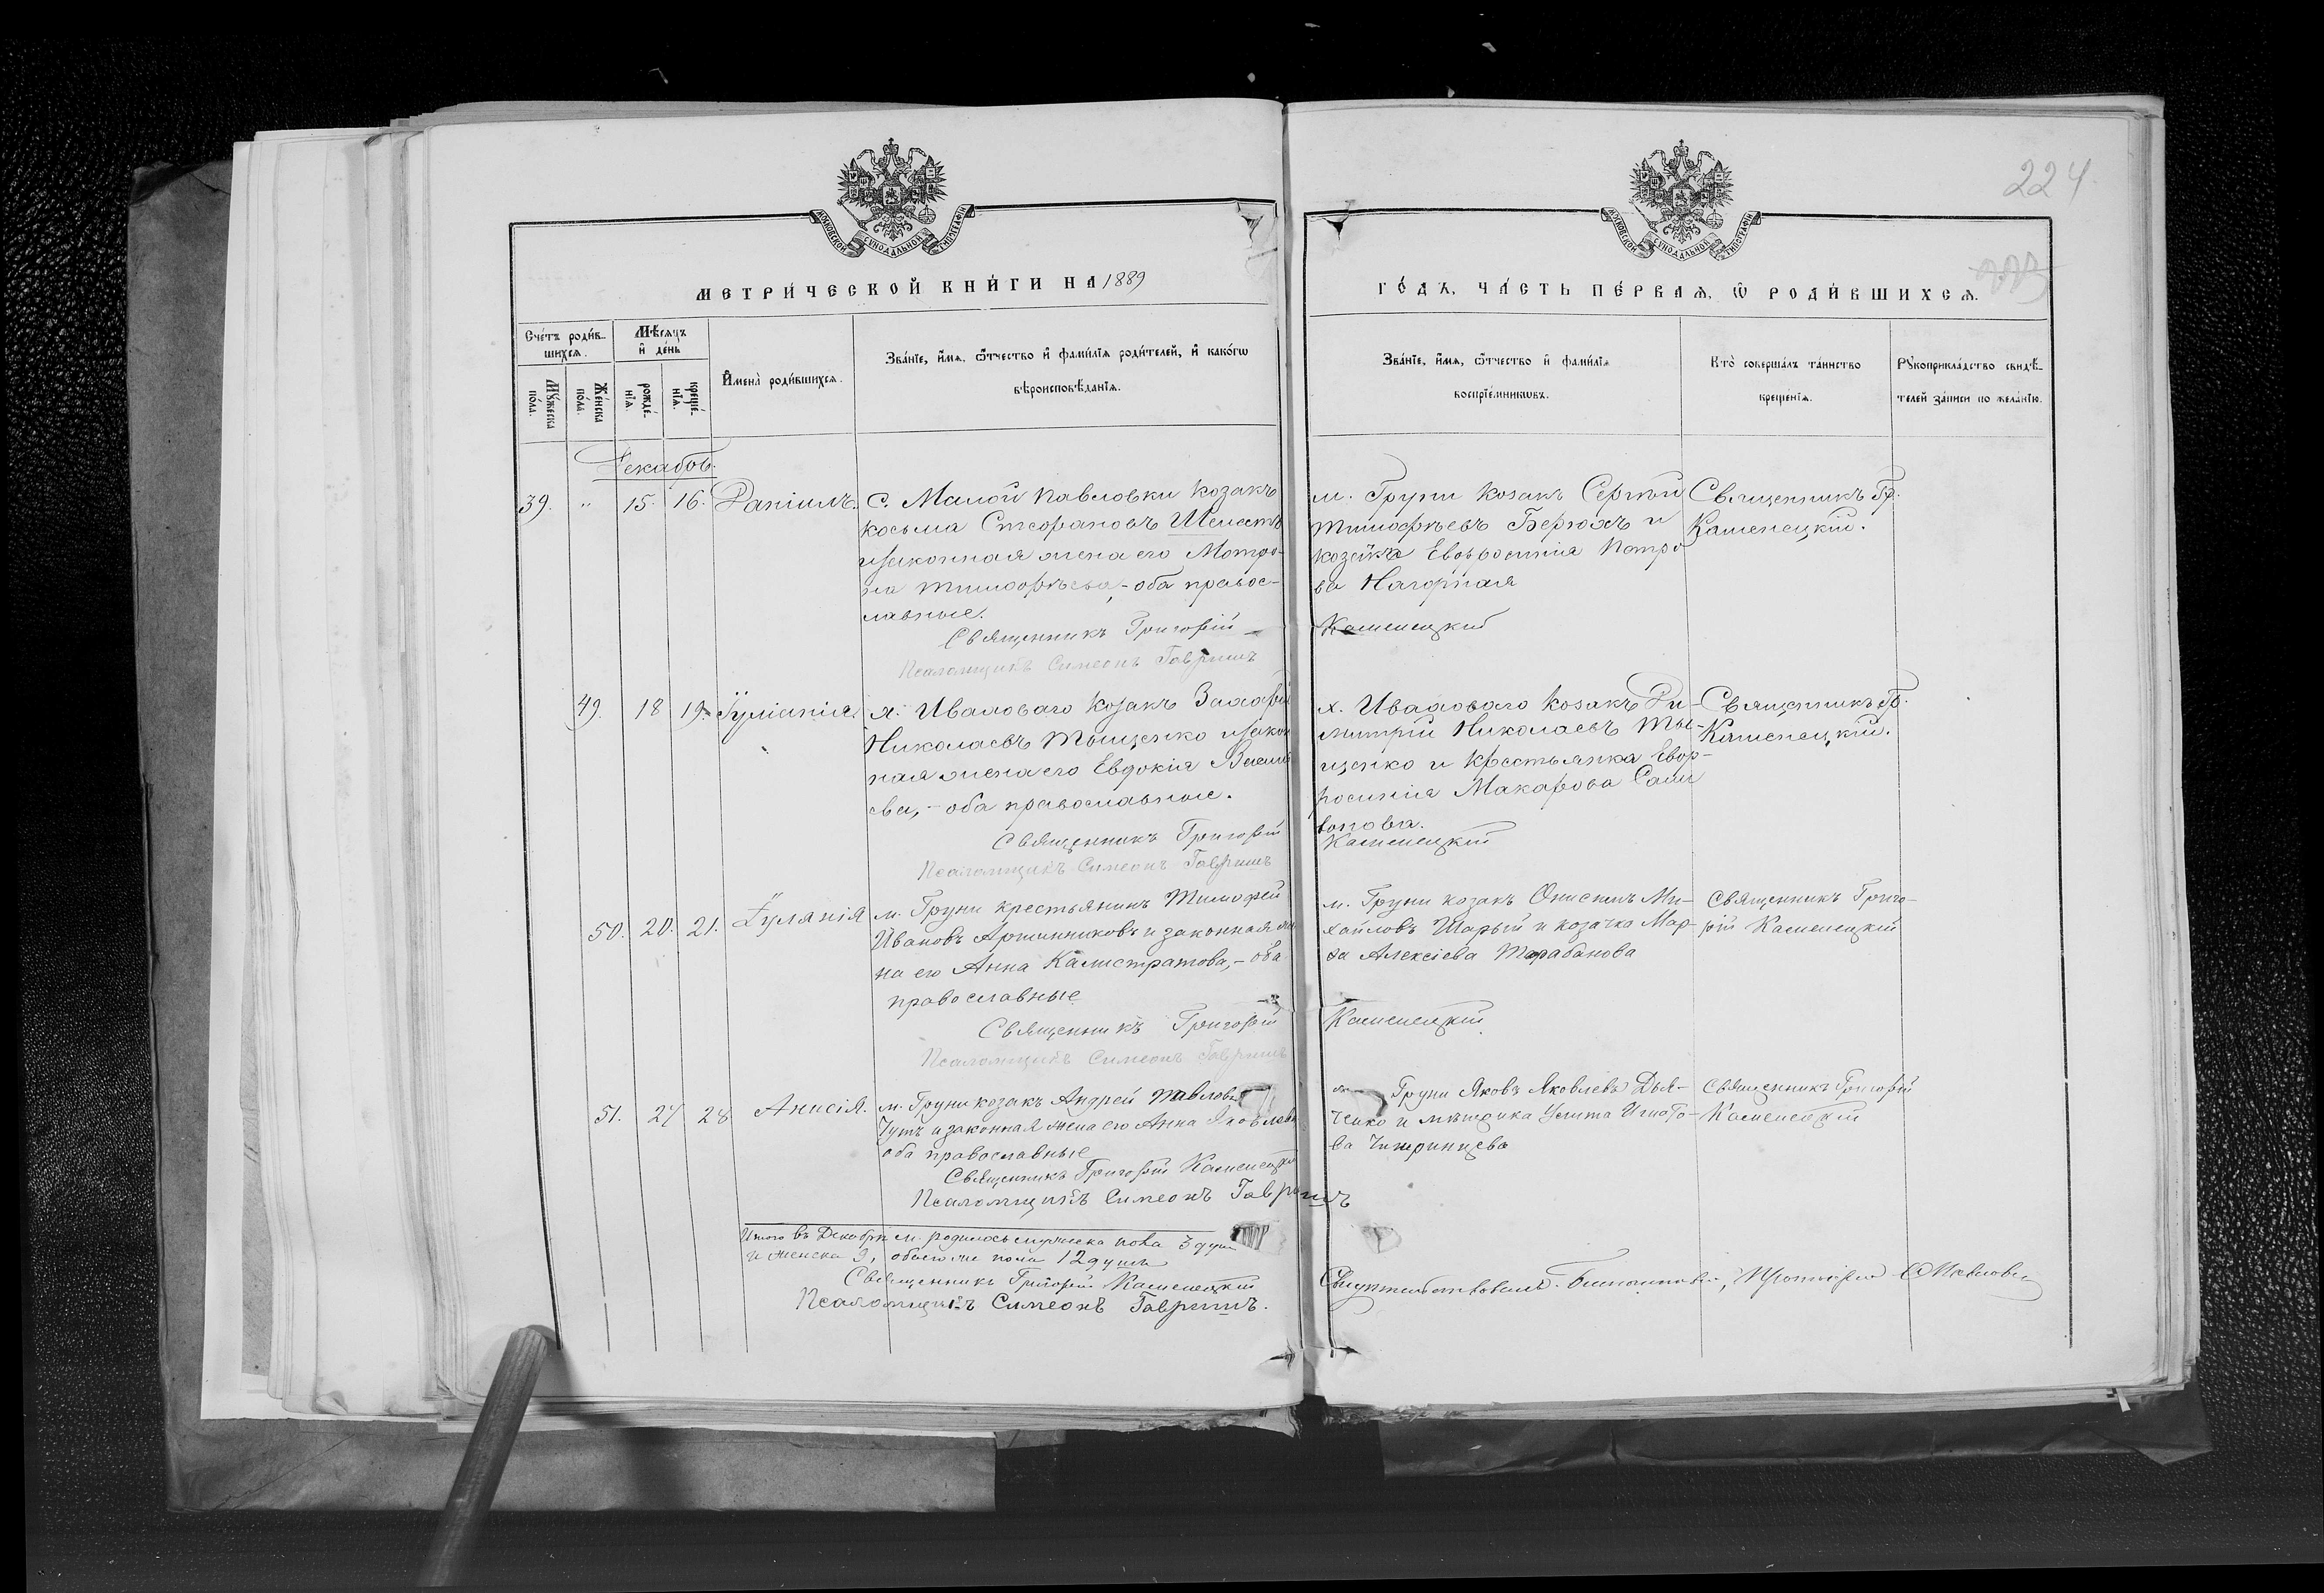 224
МОСКОВСКОЙ СУНОДАЛЬНОЙ ТИПОГРАФІИ
МОСКОВСКОЙ СУНОДАЛЬНОЙ ТИПОГРАФІИ
МЕТРИ́ЧЕСКОЙ КНИ́ГИ НА 1889
ГО́ДЪ, ЧА́СТЬ ПЕ́РВАЯ, Ѿ РОДИ́ВШИХСЯ.
Сче́тъ роди́в-
шихся.
Мѣ́сяцъ
и҆ де́нь
Му́жеска
по́ла.
Же́нска
по́ла.
рожде́-
нїя.
креще́-
нїя.
И҆мена̀ роди́вшихся.
Зва́нїе, и҆́мя, ѻ҆́тчество и҆ фами́лїя роди́телей, и҆ како́гѡ
вѣроисповѣ́данїя.
Зва́нїе, и҆́мя, ѻ҆́тчество и҆ фами́лїя
воспрїе́мникѡвъ.
Кто̀ соверша́лъ та́инство
креще́нїя.
Рукоприкла́дство свидѣ́-
телей за́писи по жела́нїю.
Декабрь.
39. " 15. 16. Данiилъ.
с. Малой Павловки козакъ
Косьма Стефановъ
и законная жена его Мотро-
на Тимофѣева, - оба правос-
лавные.
Священникъ Григорій
Каменецкій
Псаломщикъ Симеонъ Гавришъ
м. Груни козакъ Сергѣй
Тимофѣевъ и
козачка Евфросинія Петро
ва Нагорная
Священникъ Гр.
Каменецкій.
49. 18 19. Іуліанія.
х. Иваловаго козакъ
Николаевъ Тыщенко и закон
ная жена его Евдокія Василі
ева, - оба православные.
Священникъ Григорій
Каменецкій
Псаломщикъ Симеонъ Гавришъ
х. Иваловаго козакъ Ди-
митрій Николаевъ Ты-
щенко и крестьянка Евф-
росинія Макарова
Священникъ Гр.
Каменецкій.
50. 20. 21. Іулянія
м. Груни крестьянинъ Тимофей
Ивановъ Аршинниковъ и законная же
на его Анна Калистратова, - оба
православные
Священникъ Григорій
Каменецкій
Псаломщикъ Симеонъ Гавришъ
м. Груни козакъ Онисимъ Ми-
хайловъ Шарый и козачка Мар-
ѳа Алексіева Тарабанова
Священникъ Григо-
рій Каменецкій
51. 27 28 Анисія.
м. Груни козакъ Андрей Павловъ
Чутъ и законная жена его Анна Яковлева
оба православные
Священникъ Григорій Каменецкій
Псаломщикъ Симеонъ Гавришъ
м. Груни Яковъ Яковлевъ Дья-
ченко и мѣщанка Улита Игнато-
ва
Священникъ Григорій
Каменецкій
Итого въ Декабрѣ м. родилось мужеска пола 3 души
и женска 9, обоего же пола 12 душъ
Священникъ Григорій Каменецкій
Псаломщикъ Симеонъ Гавришъ.
Свидѣтельствовалъ Благочинный, Протоіерей